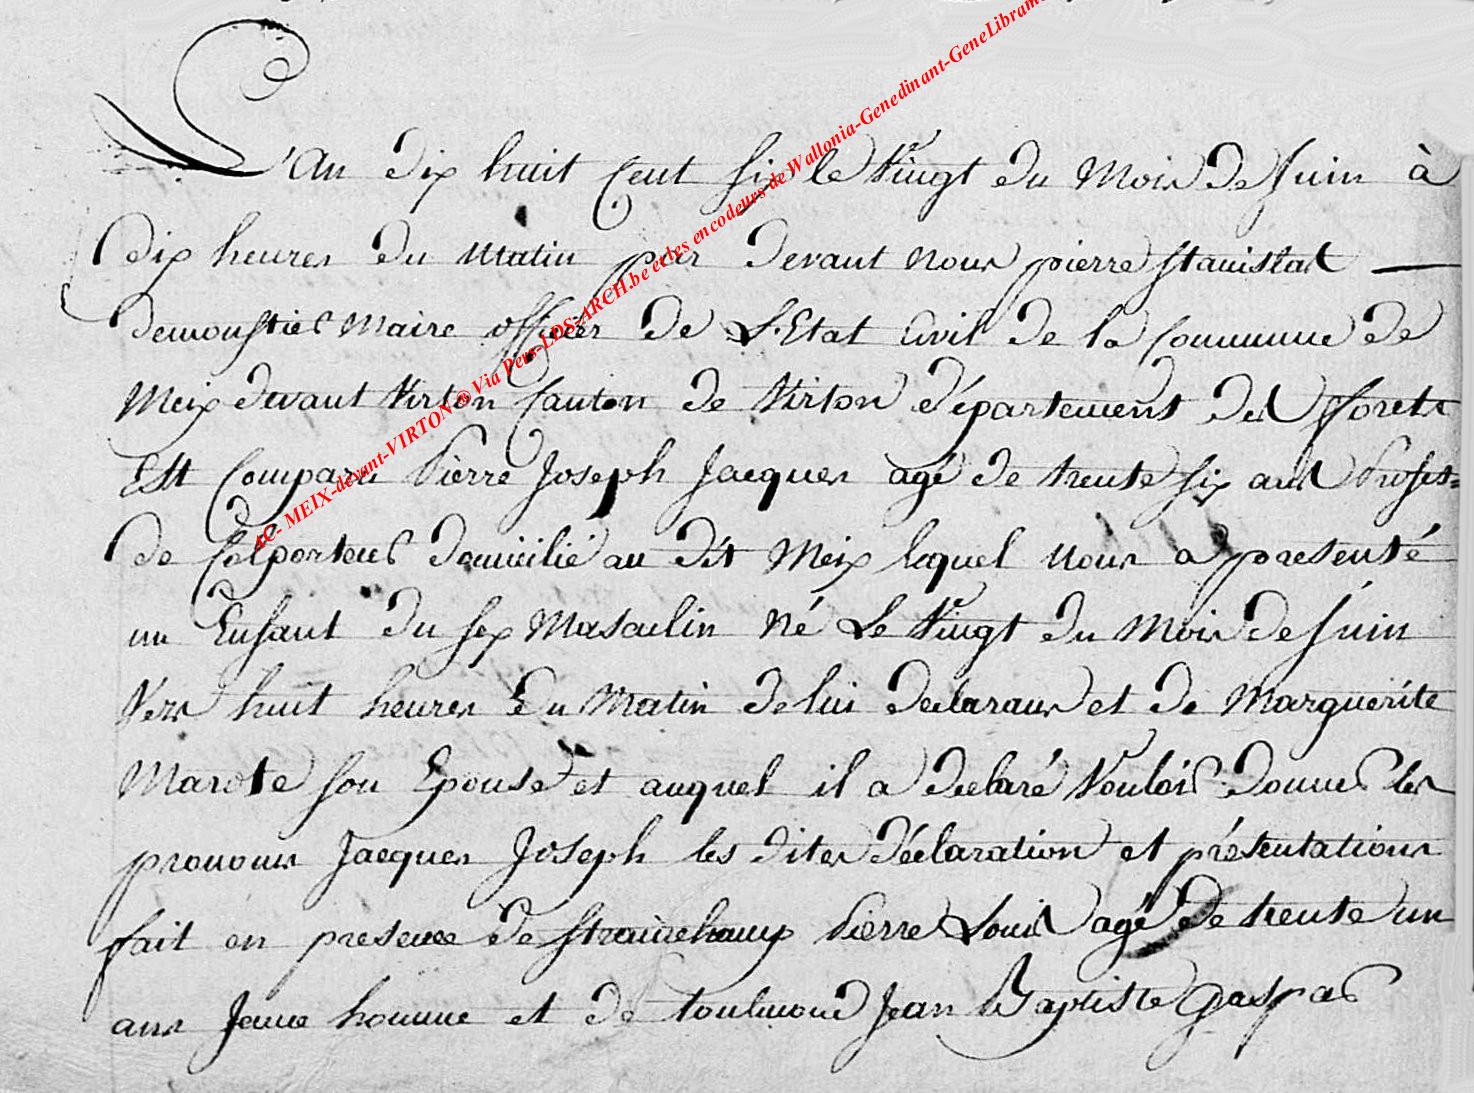 L'An dix huit Cent six le Vingt du Mois de Juin à
dix heures du Matin par devant nous pierre stanislas
demoustier Maire officier de L'Etat Civil de la Commune de
Meix devant Virton Canton de Virton département des fforets
Est Comparu Pierre Joseph Jacques agé de trente six ans Profess=
de Colporteur domicilié au dit Meix laquel nous a presenté
un Enfant du sex Masculin Né Le Vingt du Mois de Juin
Vers huit heures du Matin de lui declarans et de Marguerite
Marote son Epouse et auquel il a declaré Vouloir donner les
pronoms Jacques Joseph les dites déclaration et présentations
fait en presence de Strainchamp Pierre Louis agé de trente un
ans Jeune homme et de toulmond Jean Baptiste Gaspar
AC- MEIX-devant-VIRTON ® Via Pers-LDS-ARCH.be et les encodeurs de Wallonia-Genedinant-GeneLibram